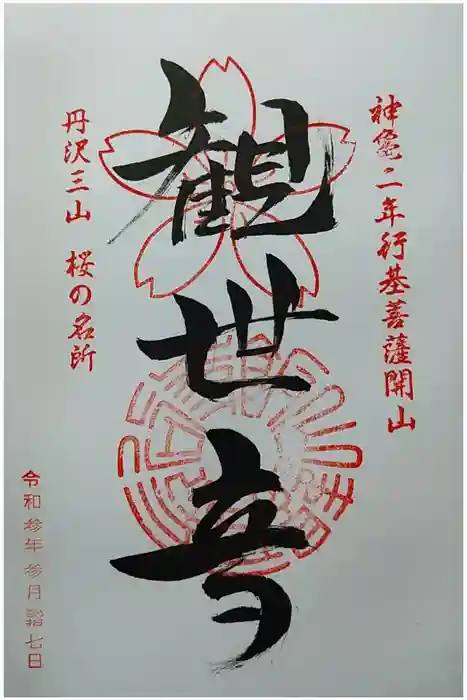 神亀二年行基菩薩開山
観世音
丹沢三山 桜の名所
令和参年 参月 七日